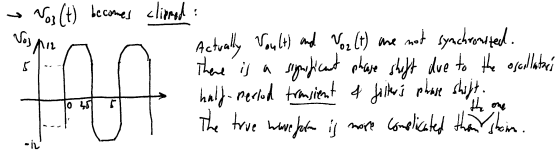 → v₀₃(t) becomes clipped :
V₀₃
12
5
0 2.5 5
-12
Actually V₀₄(t) and V₀₂(t) are not synchronized.
There is a significant phase shift due to the oscillator's
half-period transient & filter's phase shift.
The true waveform is more complicated than the one shown.